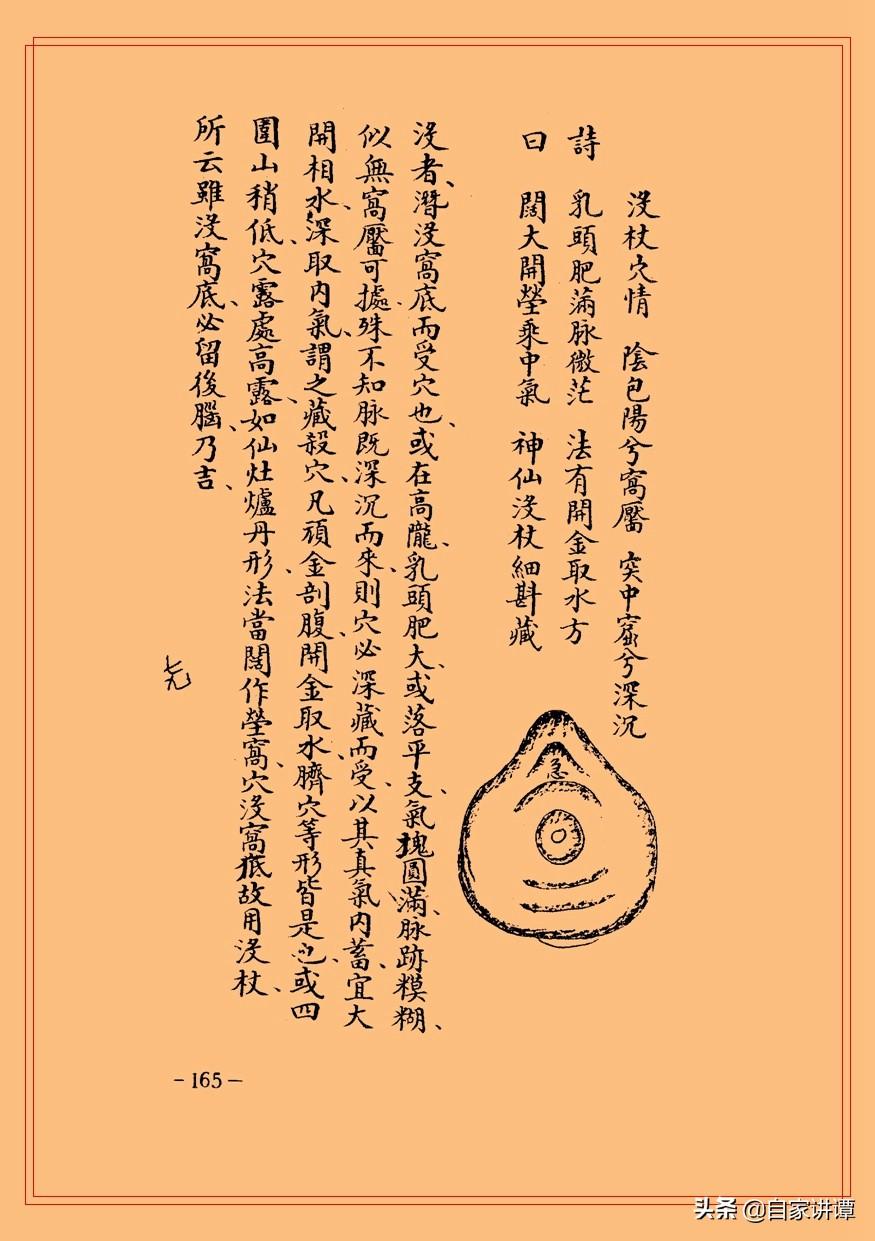 沒杖穴情　陰包陽兮窩靨　突中窟兮深沉
詩　乳頭肥滿脉微茫　法有開金取水方
曰　闊大開塋乘中氣　神仙沒杖細斟藏
急
沒者、潛沒窩底而受穴也、或在高隴、乳頭肥大、或落平支、氣塊圓滿、脉跡糢糊、
似無窩靨可據、殊不知脉既深沉而來、則穴必深藏而受、以其真氣內蓄、宜大
開相水、深取內氣、謂之藏殺穴、凡頑金剖腹、開金取水、臍穴等形皆是也、或四
圍山稍低、穴露處高露、如仙灶爐丹形、法當闊作塋窩、穴沒窩底故用沒杖、
所云雖沒窩底、必留後腦、乃吉、
-165-
头条 @自家讲谭